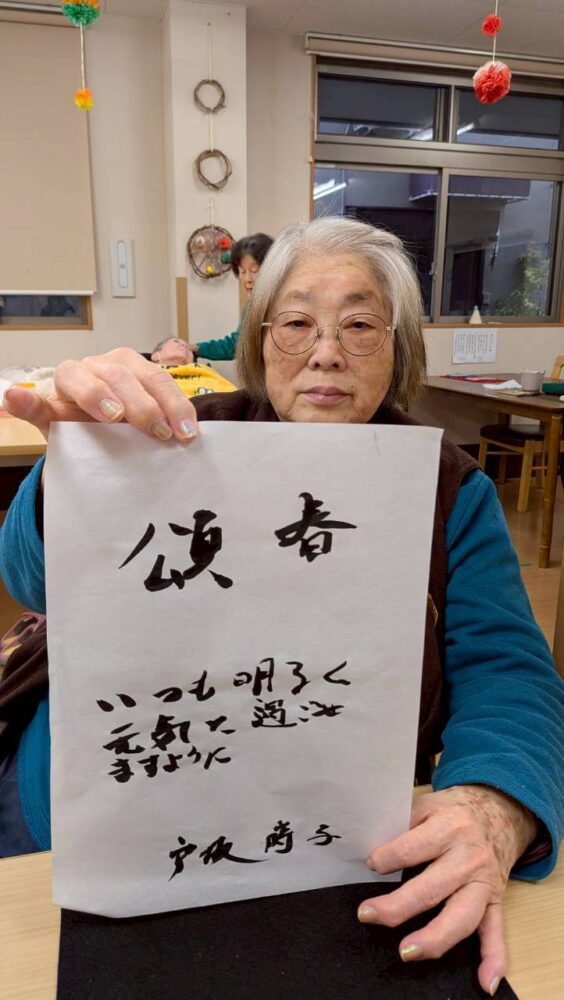 頌春
いつも明るく
元気に過ごせ
ますように
戸坂